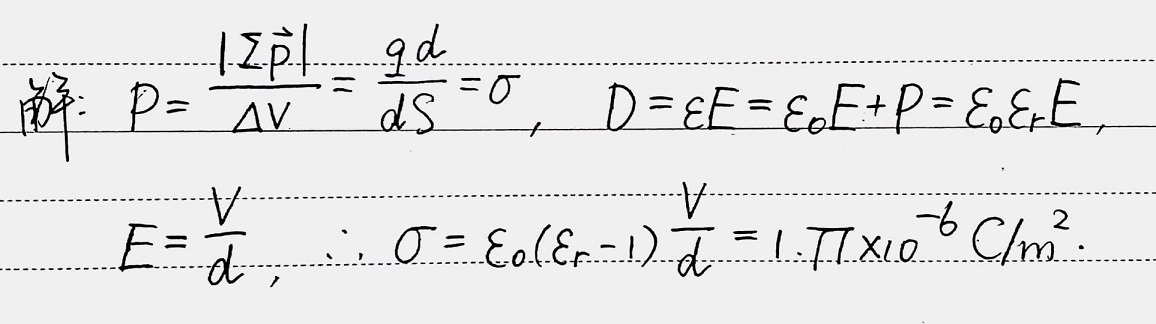 解: P = |Σp⃗|/ΔV = qd/dS = σ, D = εE = ε₀E + P = ε₀εᵣE,
E = V/d, ∴ σ = ε₀(εᵣ-1) V/d = 1.77×10⁻⁶ C/m².